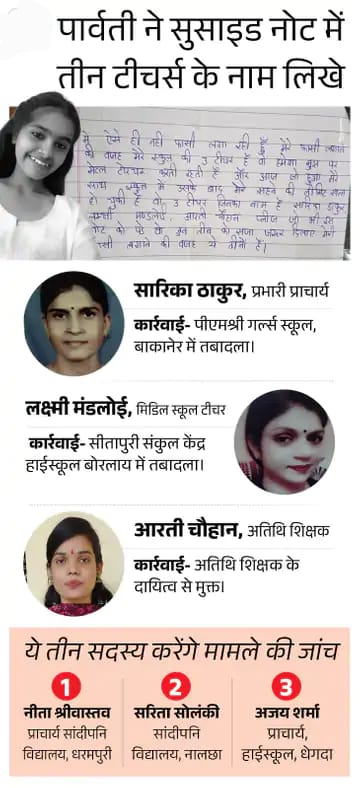 पार्वती ने सुसाइड नोट में
तीन टीचर्स के नाम लिखे
मै ऐसे ही नहीं फासी लगा रही हूँ मेरे फासी लगाने
की वजह मेरे स्कुल की 3 टीचर है वो हमेशा मुझ पर
मेंटल टॉरचर करती रहती है और आज जो हुआ मेरे
साथ स्कुल में उसके बाद मेरे सहने की
हो चुकी है वो 3 टीचर जिनका नाम है सारिका ठाकुर
लक्ष्मी मण्डलोई, आरती चौहान प्लीज जो भी इस
नोट को पढ़े के इन तीनो को सजा जरूर दिलाए मेरी
फासी लगाने की वजह ये तीनो है।
सारिका ठाकुर, प्रभारी प्राचार्य
कार्रवाई- पीएमश्री गर्ल्स स्कूल,
बाकानेर में तबादला।
लक्ष्मी मंडलोई, मिडिल स्कूल टीचर
कार्रवाई- सीतापुरी संकुल केंद्र
हाईस्कूल बोरलाय में तबादला।
आरती चौहान, अतिथि शिक्षक
कार्रवाई- अतिथि शिक्षक के
दायित्व से मुक्त।
ये तीन सदस्य करेंगे मामले की जांच
1
नीता श्रीवास्तव
प्राचार्य सांदीपनि
विद्यालय, धरमपुरी
2
सरिता सोलंकी
सांदीपनि
विद्यालय, नालछा
3
अजय शर्मा
प्राचार्य,
हाईस्कूल, धेगदा